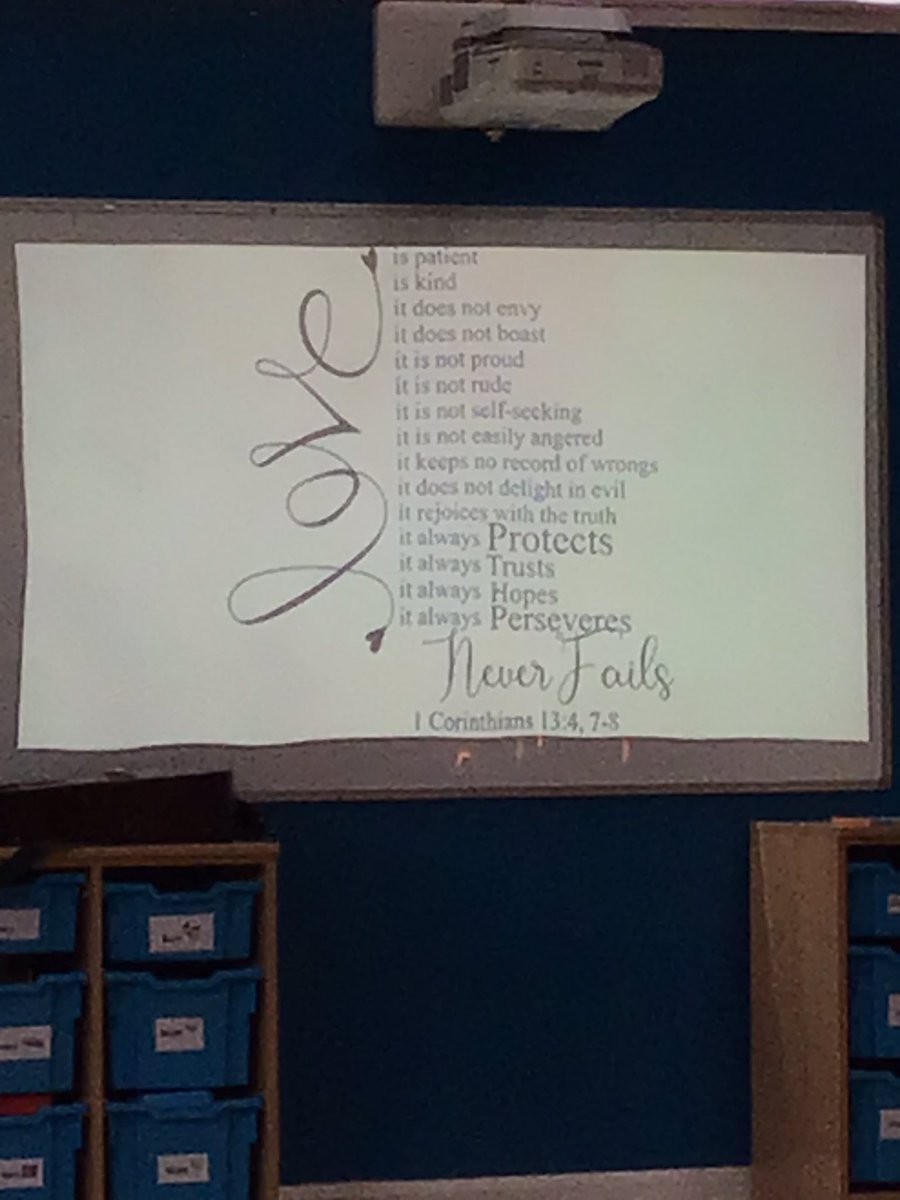 love
is patient
is kind
it does not envy
it does not boast
it is not proud
it is not rude
it is not self-seeking
it is not easily angered
it keeps no record of wrongs
it does not delight in evil
it rejoices with the truth
it always Protects
it always Trusts
it always Hopes
it always Perseveres
Never Fails
1 Corinthians 13:4, 7-8